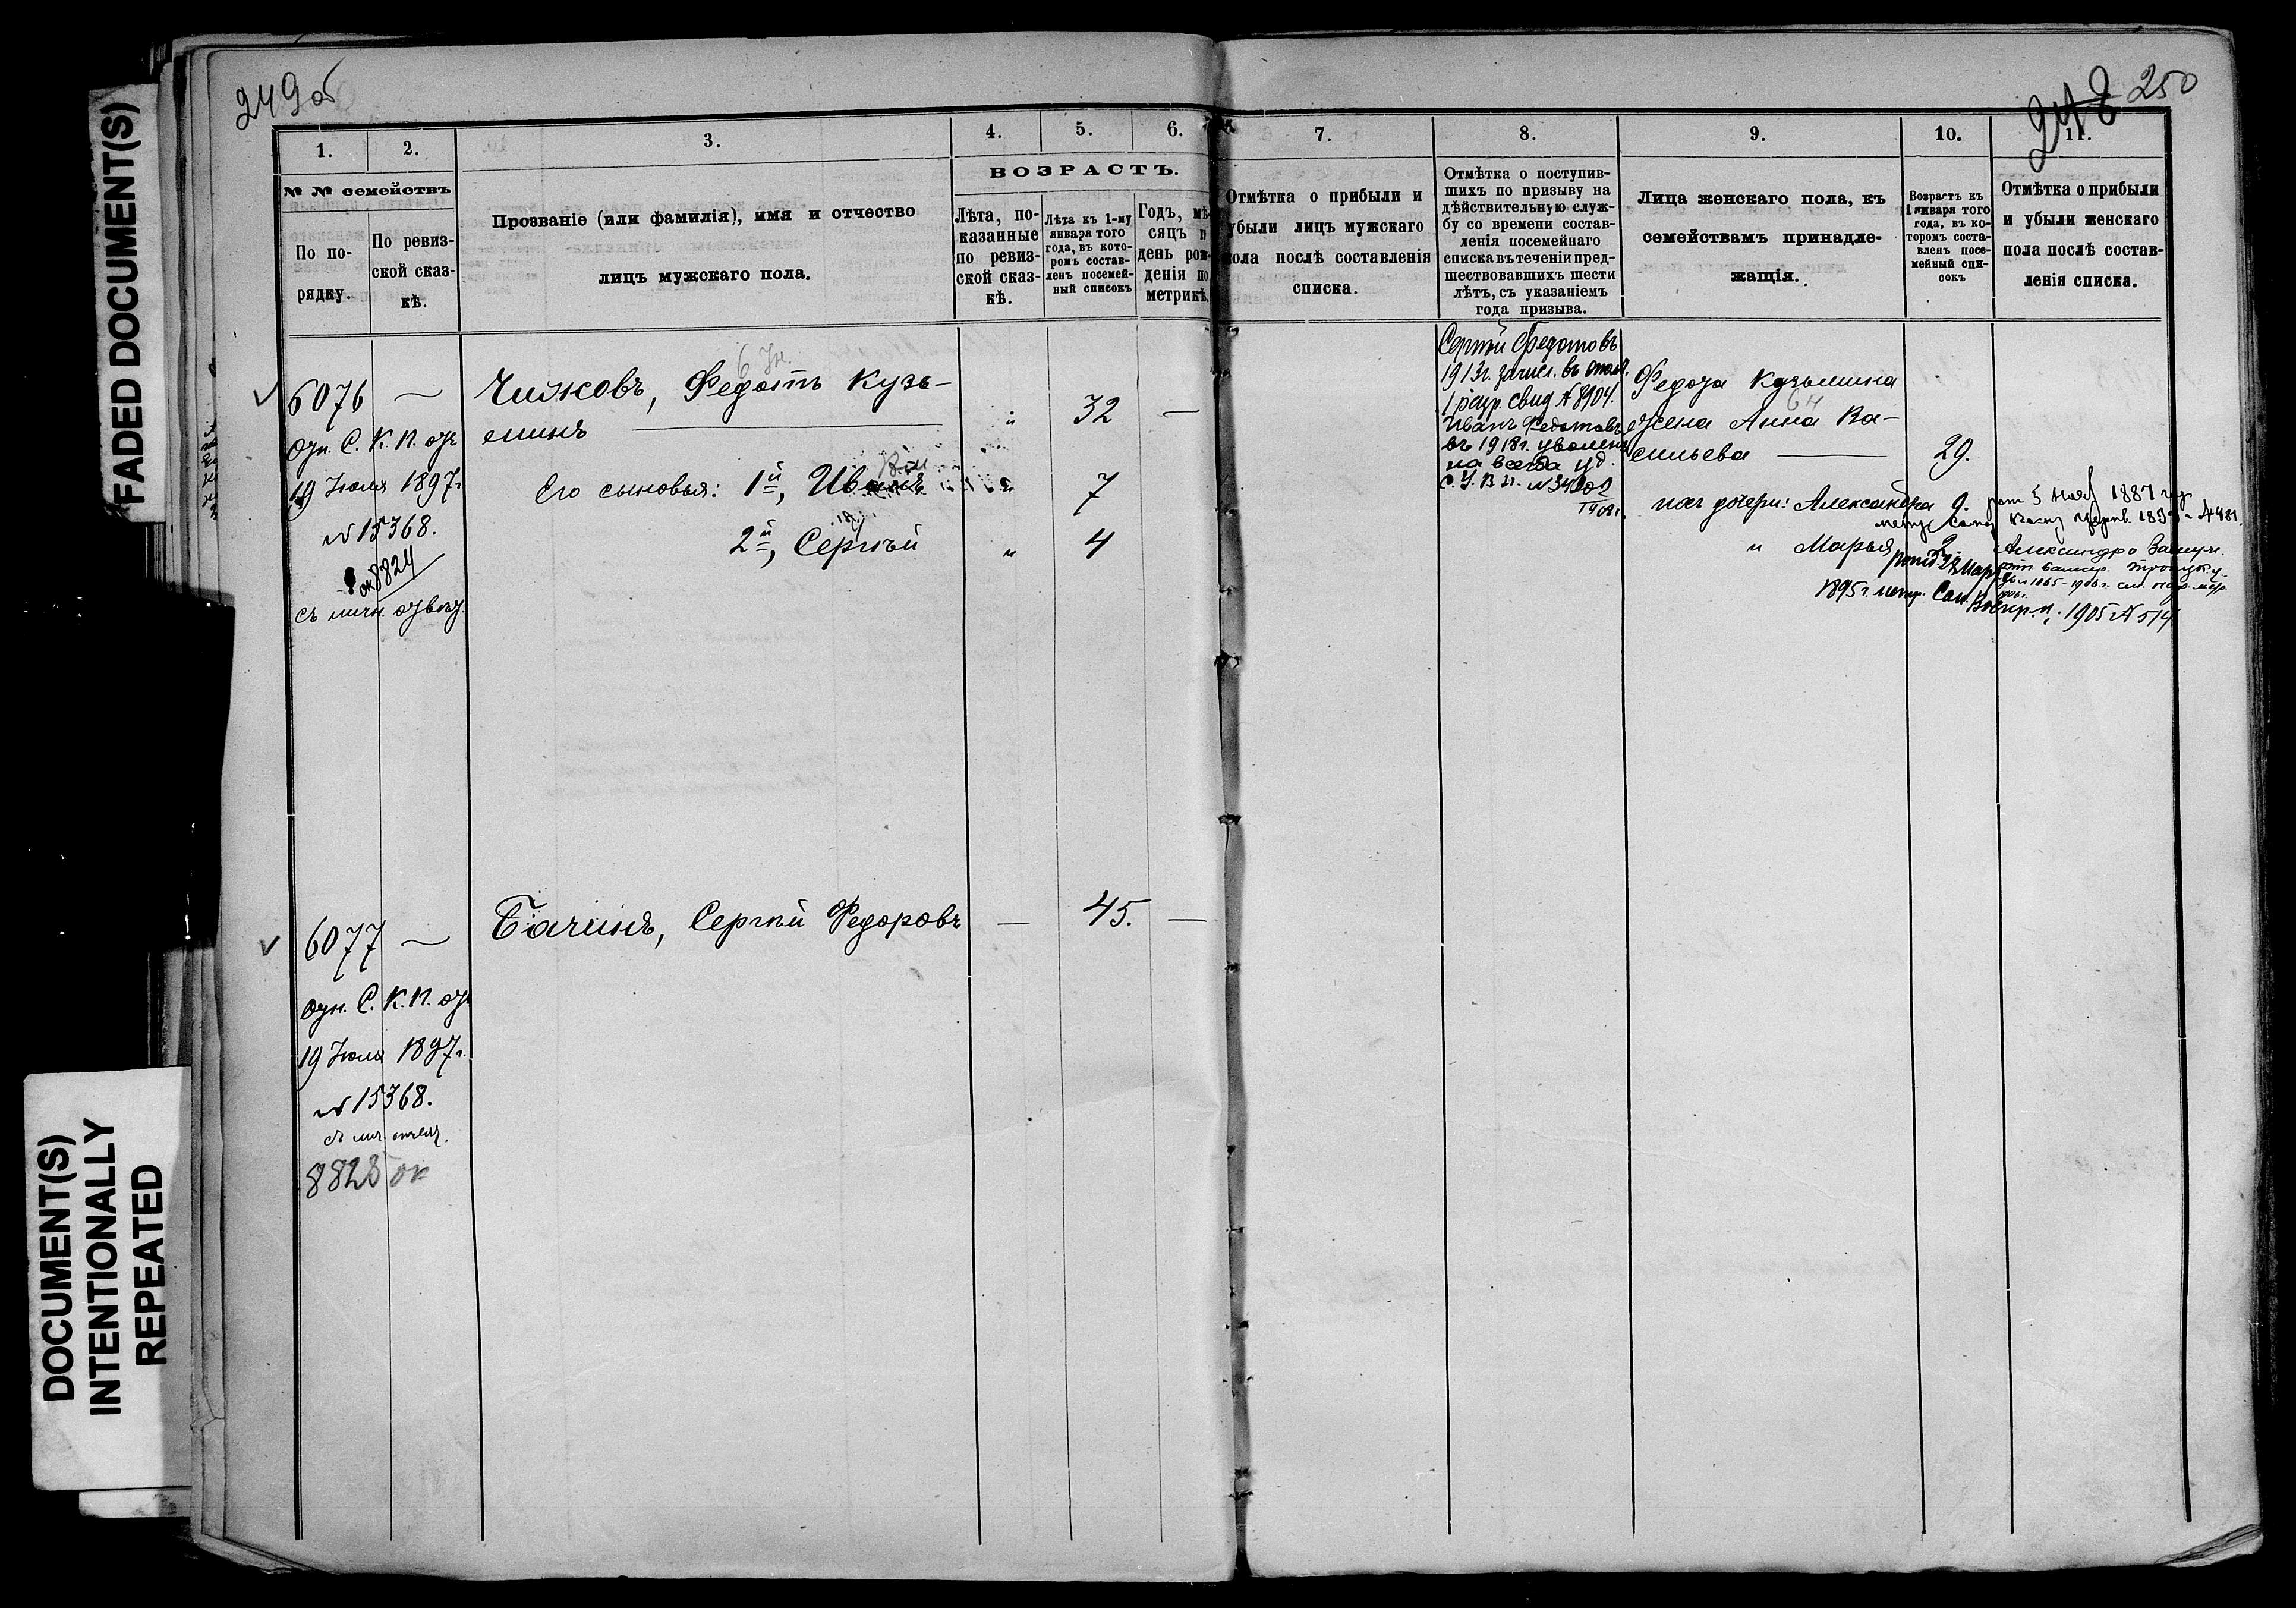 FADED DOCUMENT(S)
DOCUMENT(S)
INTENTIONALLY
REPEATED
249об
248 250
1.
2.
3.
4.
5.
6.
№ № семействъ
По по-
рядку.
По ревиз-
ской сказ-
кѣ.
Прозваніе (или фамилія), имя и отчество
лицъ мужскаго пола.
ВОЗРАСТЪ.
Лѣта, по-
казанные
по ревиз-
ской сказ-
кѣ.
Лѣта къ 1-му
января того
года, въ кото-
ромъ состав-
ленъ посемей-
ный списокъ
Годъ, мѣ-
сяцъ и
день рож-
денія по
метрикѣ.
7.
8.
9.
10.
11.
Отмѣтка о прибыли и
убыли лицъ мужскаго
пола послѣ составленія
списка.
Отмѣтка о поступив-
шихъ по призыву на
дѣйствительную служ-
бу со времени состав-
ленія посемейнаго
списка въ теченіи пред-
шествовавшихъ шести
лѣтъ, съ указаніемъ
года призыва.
Лица женскаго пола, къ
семействамъ принадле-
жащія.
Возрастъ къ
1 января того
года, въ ко-
торомъ соста-
вленъ посе-
мейный спи-
сокъ
Отмѣтка о прибыли
и убыли женскаго
пола послѣ состав-
ленія списка.
6076 —
С. К. П.
19 Іюля 1897г.
№ 15368.
ок 8824
съ личн.
Чижовъ, Федотъ Кузь-
минъ
32 —
Его сыновья: 1й, Иванъ
" 7
2й, Сергѣй " 4
Сергѣй Федотовъ
1913г. зачисл. въ опол.
1 разр. свид № 8904.
Иванъ Федотовъ
въ 1918г. уволенъ
на всегда уд.
Федота Кузьмина
64
жена Анна Ва-
сильева 29.
ихъ дочери: Александра 9.
" Марья 2
1895г. метр.
1905 № 514
6077 —
С. К. П.
19 Іюля 1897г.
№ 15368.
8825 ок
Бачинъ, Сергѣй Федоровъ — 45. —